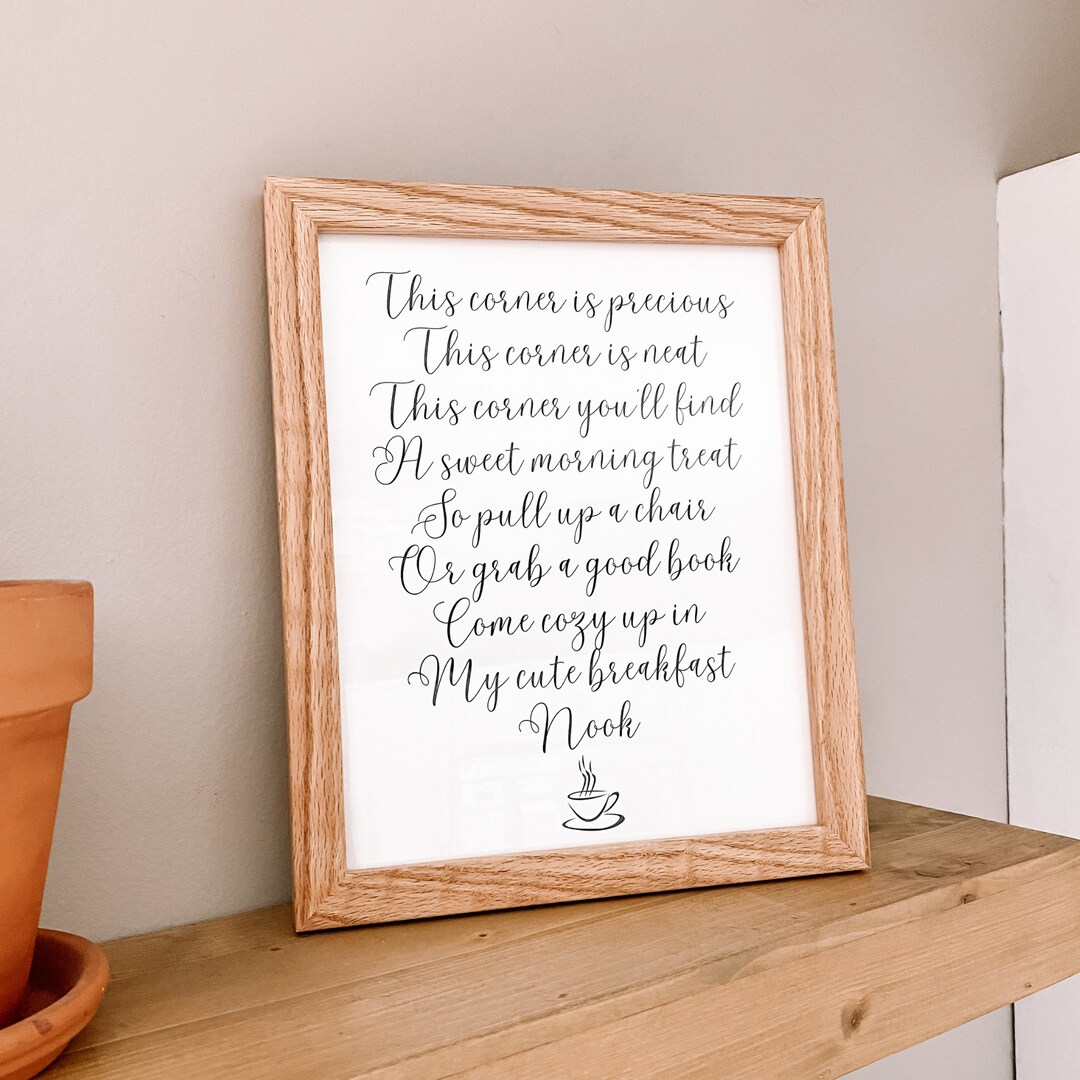 This corner is precious
This corner is neat
This corner you'll find
A sweet morning treat
So pull up a chair
Or grab a good book
Come cozy up in
My cute breakfast
Nook